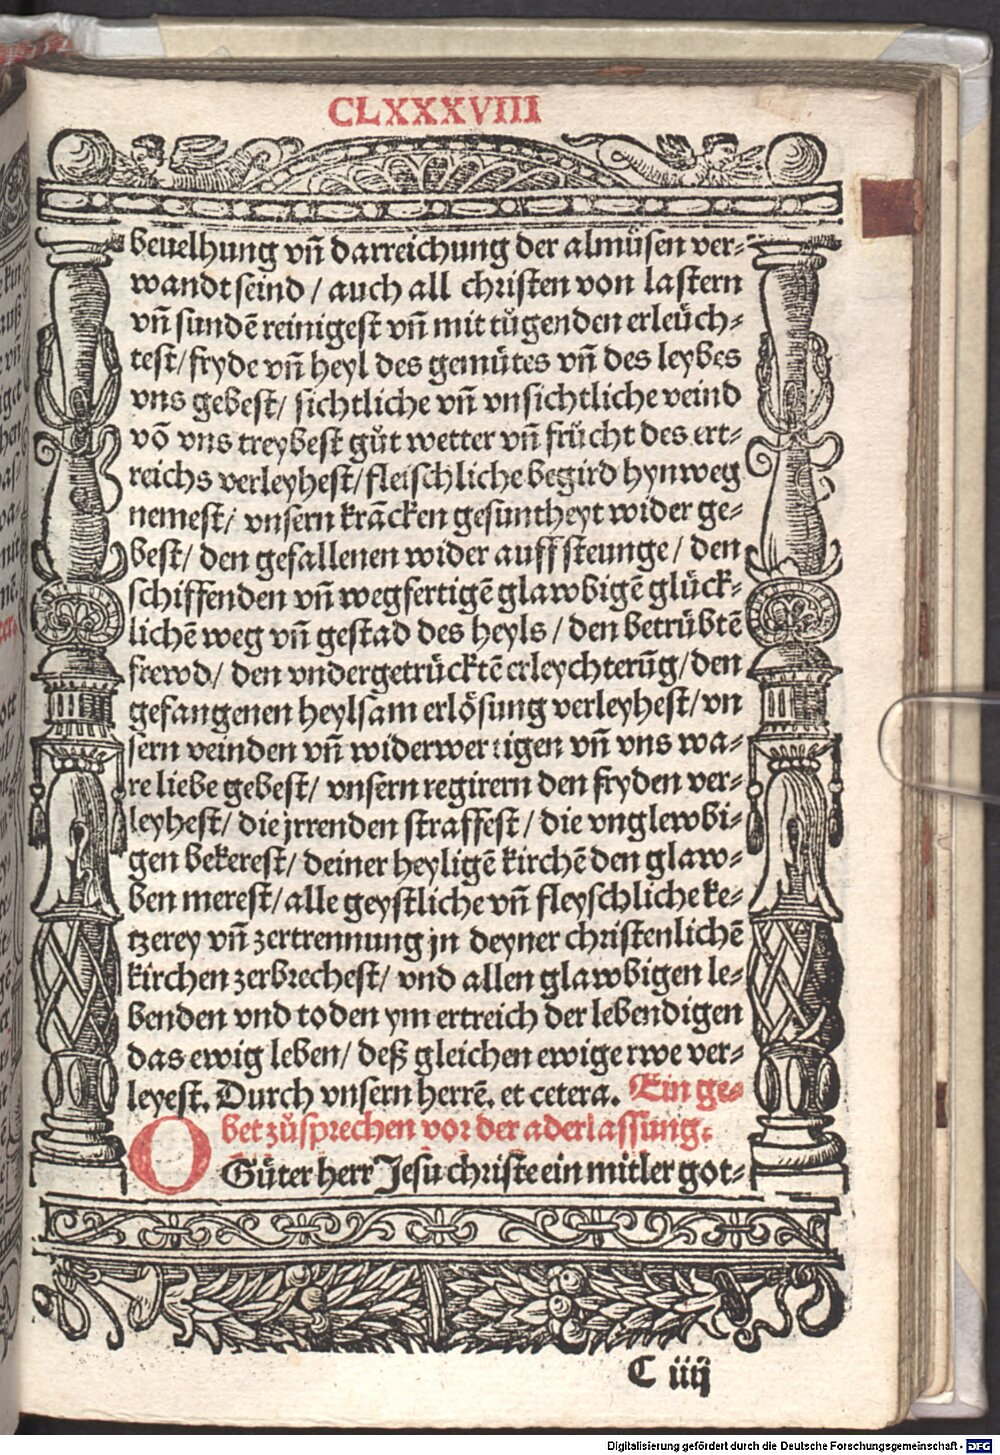 CLXXXVIII
beuelhung vn̄ darreichung der almůsen ver⸗
wandt seind / auch all christen von lastern
vn̄ sundē reinigest vn̄ mit tůgenden erleüch⸗
test / fryde vn̄ heyl des gemütes vn̄ des leybes
vns gebest / sichtliche vn̄ vnsichtliche veind
vō vns treybest gůt wetter vn̄ frücht des ert⸗
reichs verleyhest / fleischliche begird hynweg
nemest / vnsern krācken gesuntheyt wider ge⸗
best / den gefallenen wider auffsteunge / den
schiffenden vn̄ wegfertigē glawbigē glück⸗
lichē weg vn̄ gestad des heyls / den betrübtē
frewd / den vndergetrücktē erleychterūg / den
gefangenen heylsam erlösung verleyhest / vn
sern veinden vn̄ widerwertigen vn̄ vns wa⸗
re liebe gebest / vnsern regirern den fryden ver⸗
leyhest / die jrrenden straffest / die vnglewbi⸗
gen bekerest / deiner heyligē kirchē den glaw⸗
ben merest / alle geystliche vn̄ fleyschliche ke⸗
tzerey vn̄ zertrennung jn deyner christenlichē
kirchen zerbrechest / vnd allen glawbigen le⸗
benden vnd toden ym ertreich der lebendigen
das ewig leben / deß gleichen ewige rwe ver⸗
leyest. Durch vnsern herrē. et cetera. Ein ge⸗
bet zůsprechen vor der aderlassung.
O Gůter herr Jesu christe ein mitler got⸗
C iiij
Digitalisierung gefördert durch die Deutsche Forschungsgemeinschaft - DFG